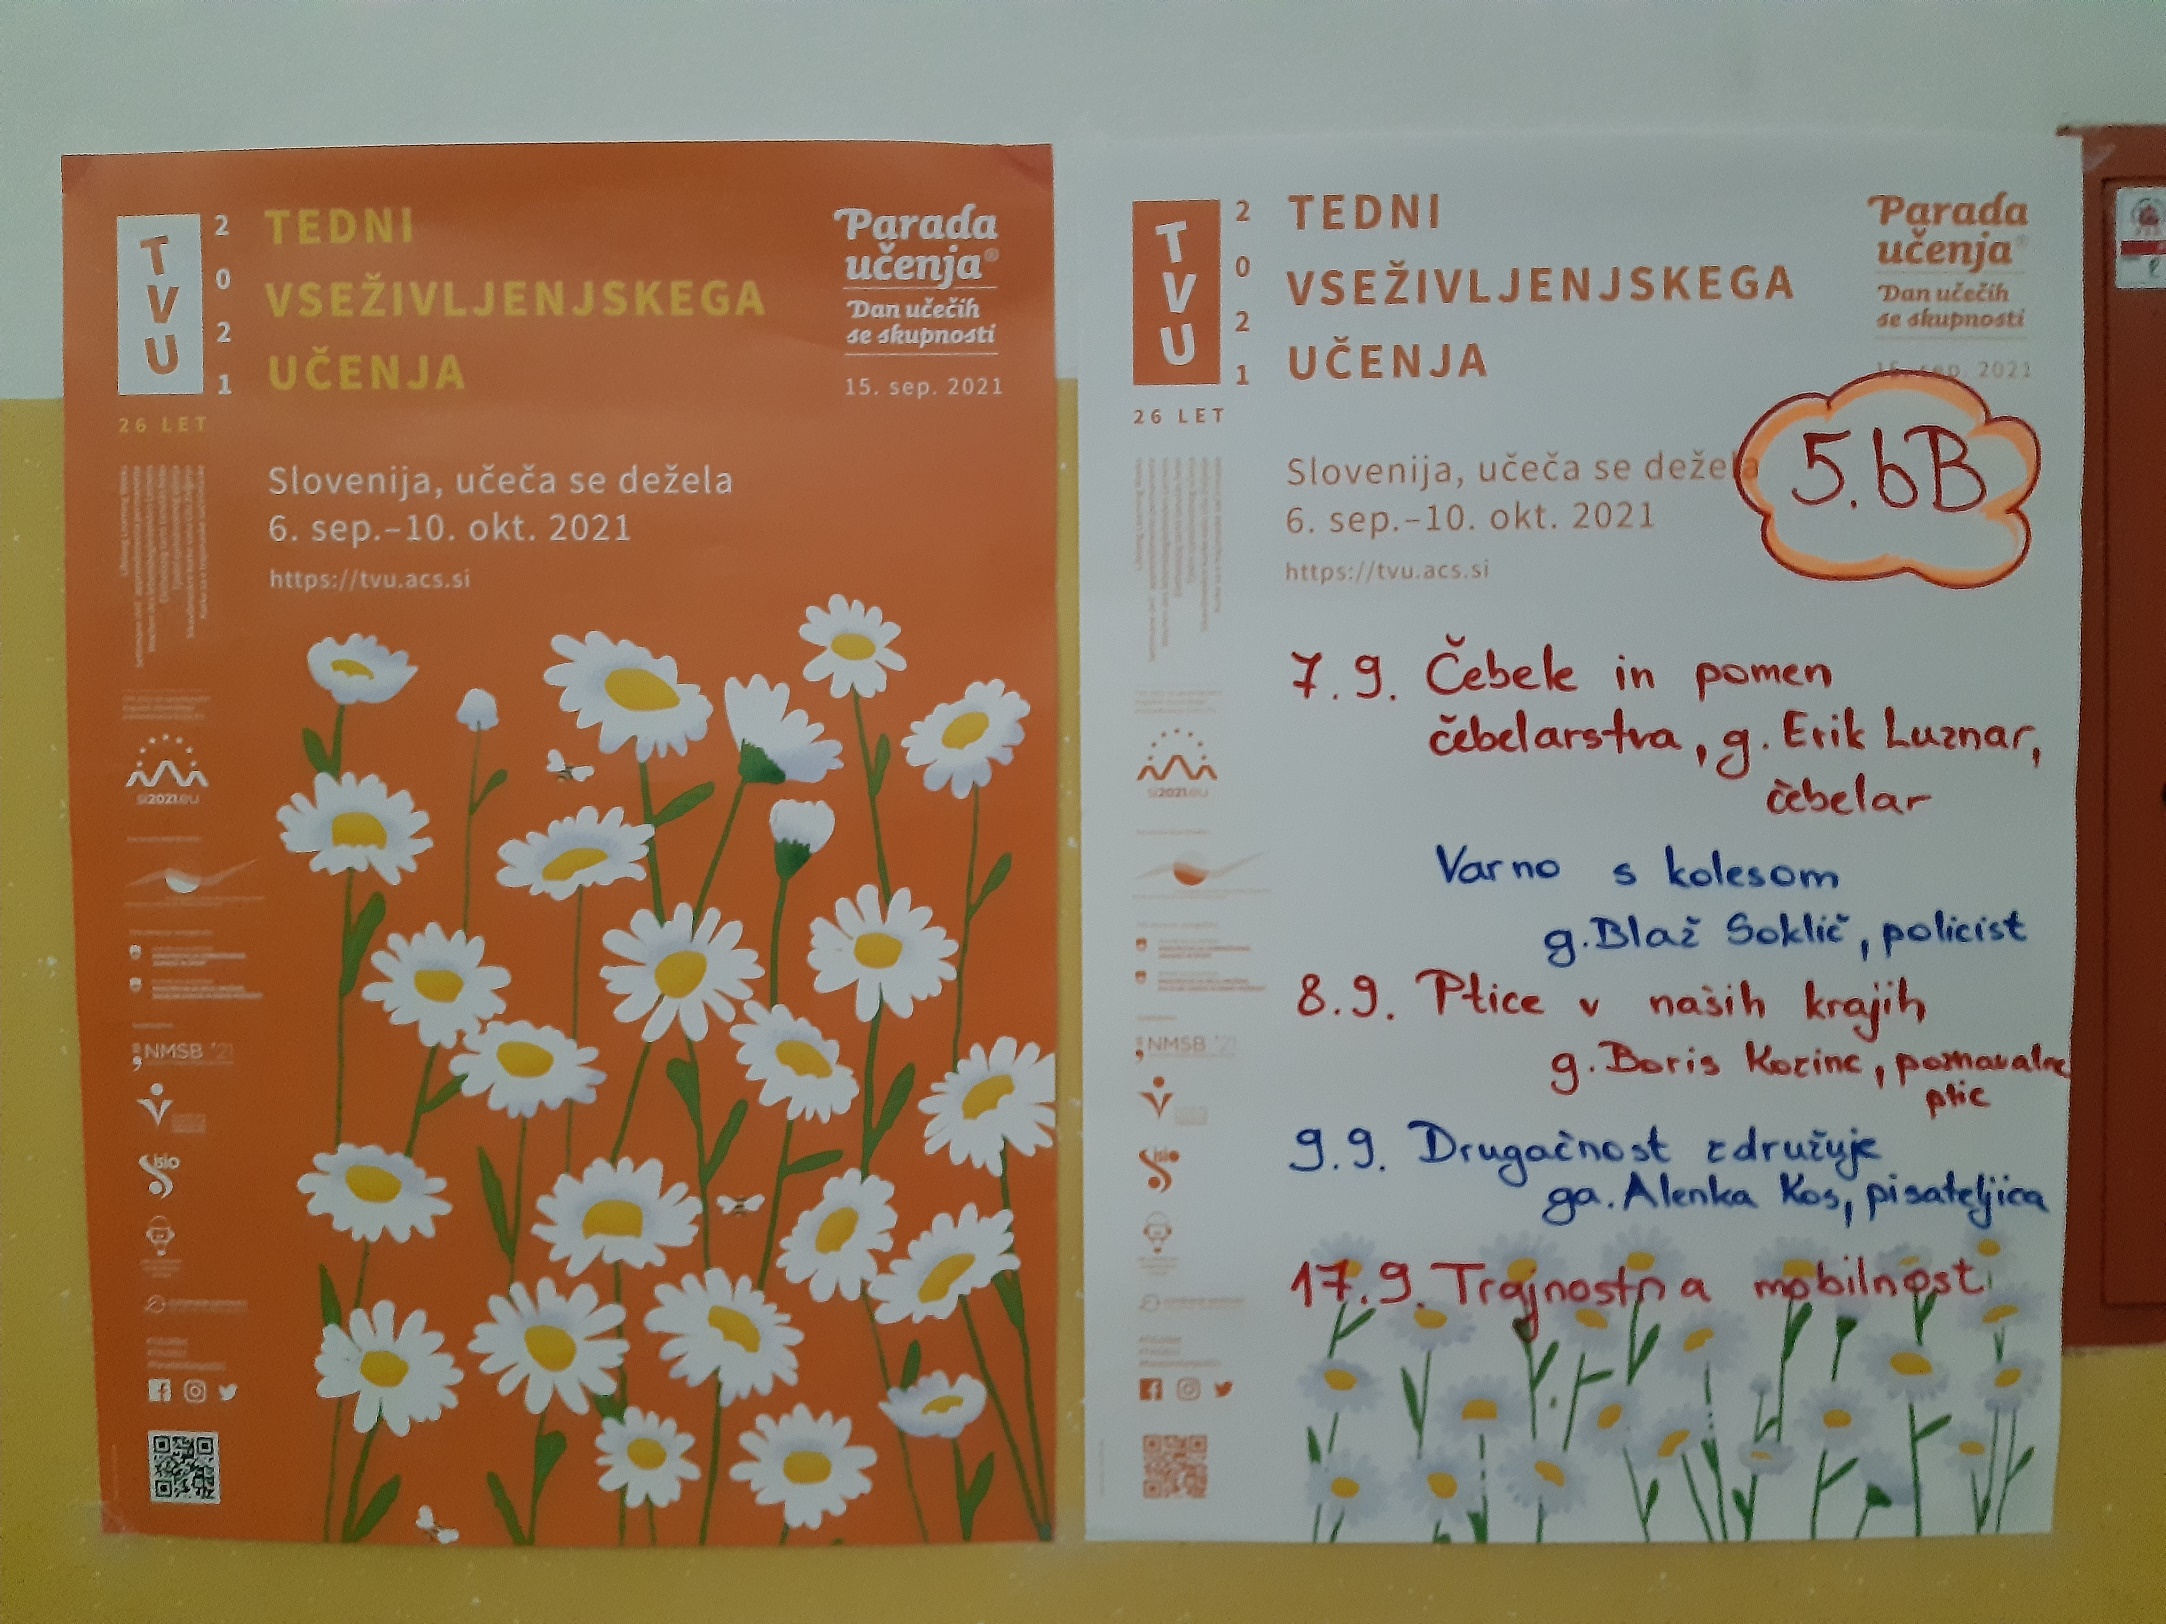 TVU
2021
26 LET
TEDNI
VSEŽIVLJENJSKEGA
UČENJA
Parada
učenja®
Dan učečih
se skupnosti
15. sep. 2021
Slovenija, učeča se dežela
6. sep.–10. okt. 2021
https://tvu.acs.si
si2021.eu
NMSB '21
isio
TVU
2021
26 LET
TEDNI
VSEŽIVLJENJSKEGA
UČENJA
Parada
učenja®
Dan učečih
se skupnosti
15. sep. 2021
5. bB
Slovenija, učeča se dežela
6. sep.–10. okt. 2021
https://tvu.acs.si
7. 9. Čebele in pomen
čebelarstva, g. Erik Luznar,
čebelar
Varno s kolesom
g. Blaž Soklič, policist
8. 9. Ptice v naših krajih
g. Boris Kozinc, poznavalec
ptic
9. 9. Drugačnost združuje
ga. Alenka Kos, pisateljica
17. 9. Trajnostna mobilnost
si2021.eu
NMSB '21
isio